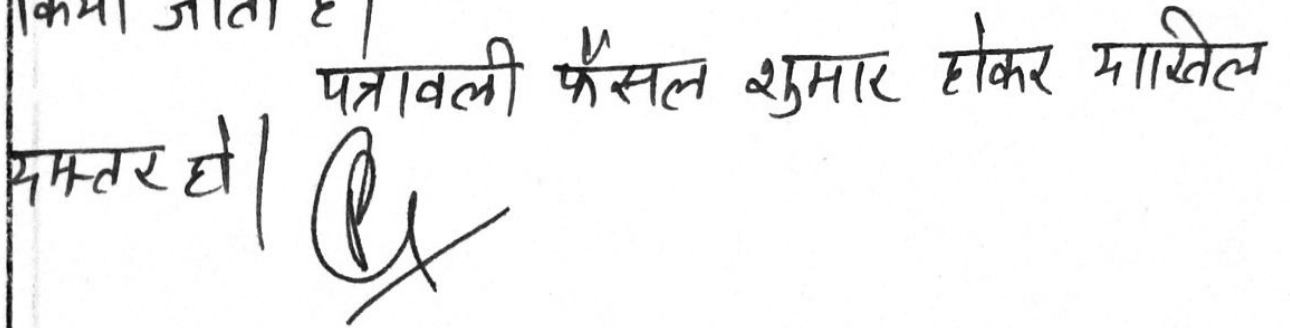 किया जाता है।
पत्रावली फैंसल शुमार होकर दाखिल
दफ्तर हो।